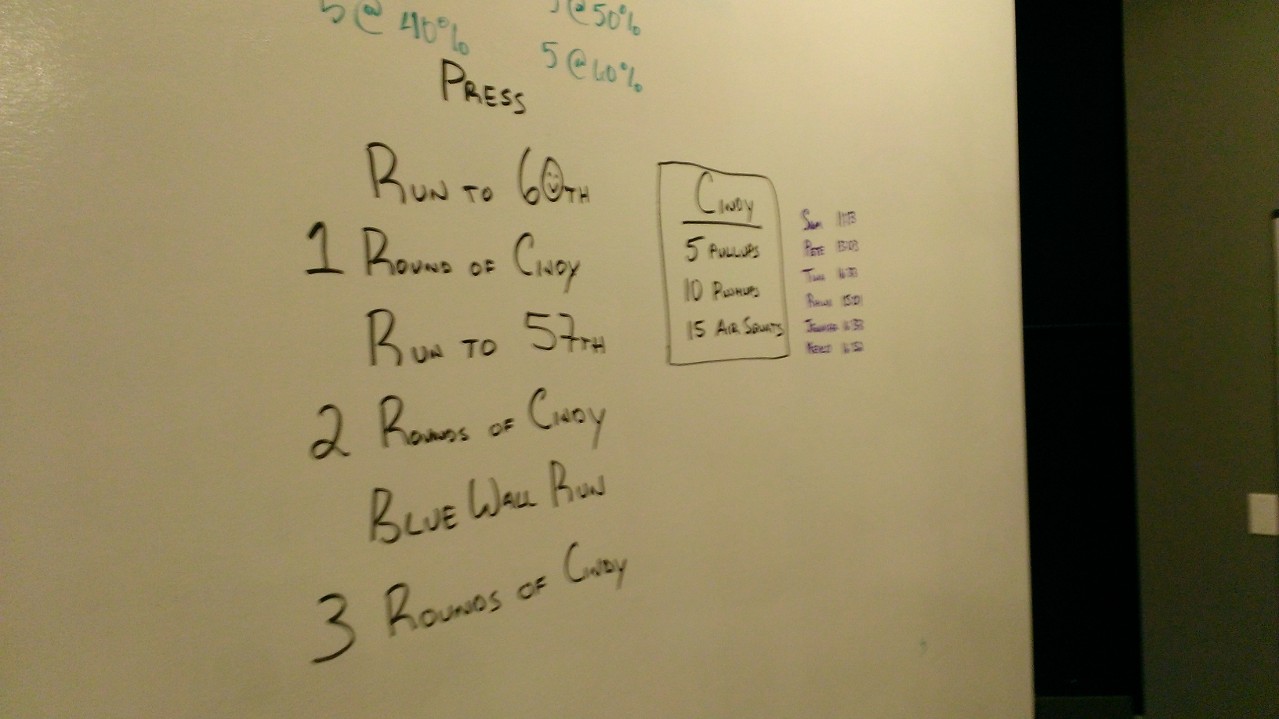 5 @ 40%
@ 50%
5 @ 60%
PRESS
RUN TO 60TH
1 ROUND OF CINDY
RUN TO 57TH
2 ROUNDS OF CINDY
BLUE WALL RUN
3 ROUNDS OF CINDY
CINDY
5 PULLUPS
10 PUSHUPS
15 AIR SQUATS
SAM
PETE